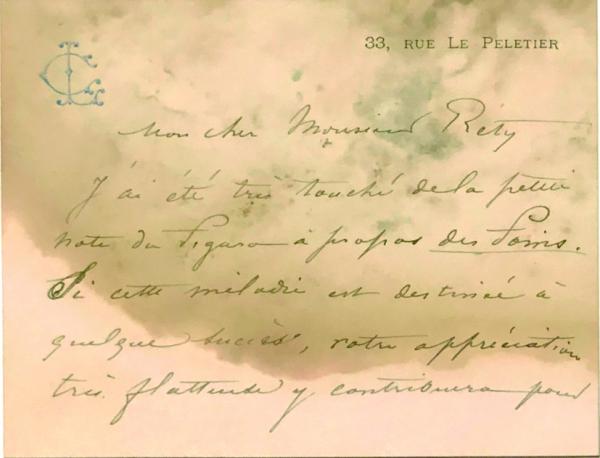 33, RUE LE PELETIER
Mon cher Monsieur Réty
J'ai été très touché de la petite
note du Figaro à propos des
Si cette mélodie est destinée à
quelque succès, votre appréciation
très flatteuse y contribuera pour